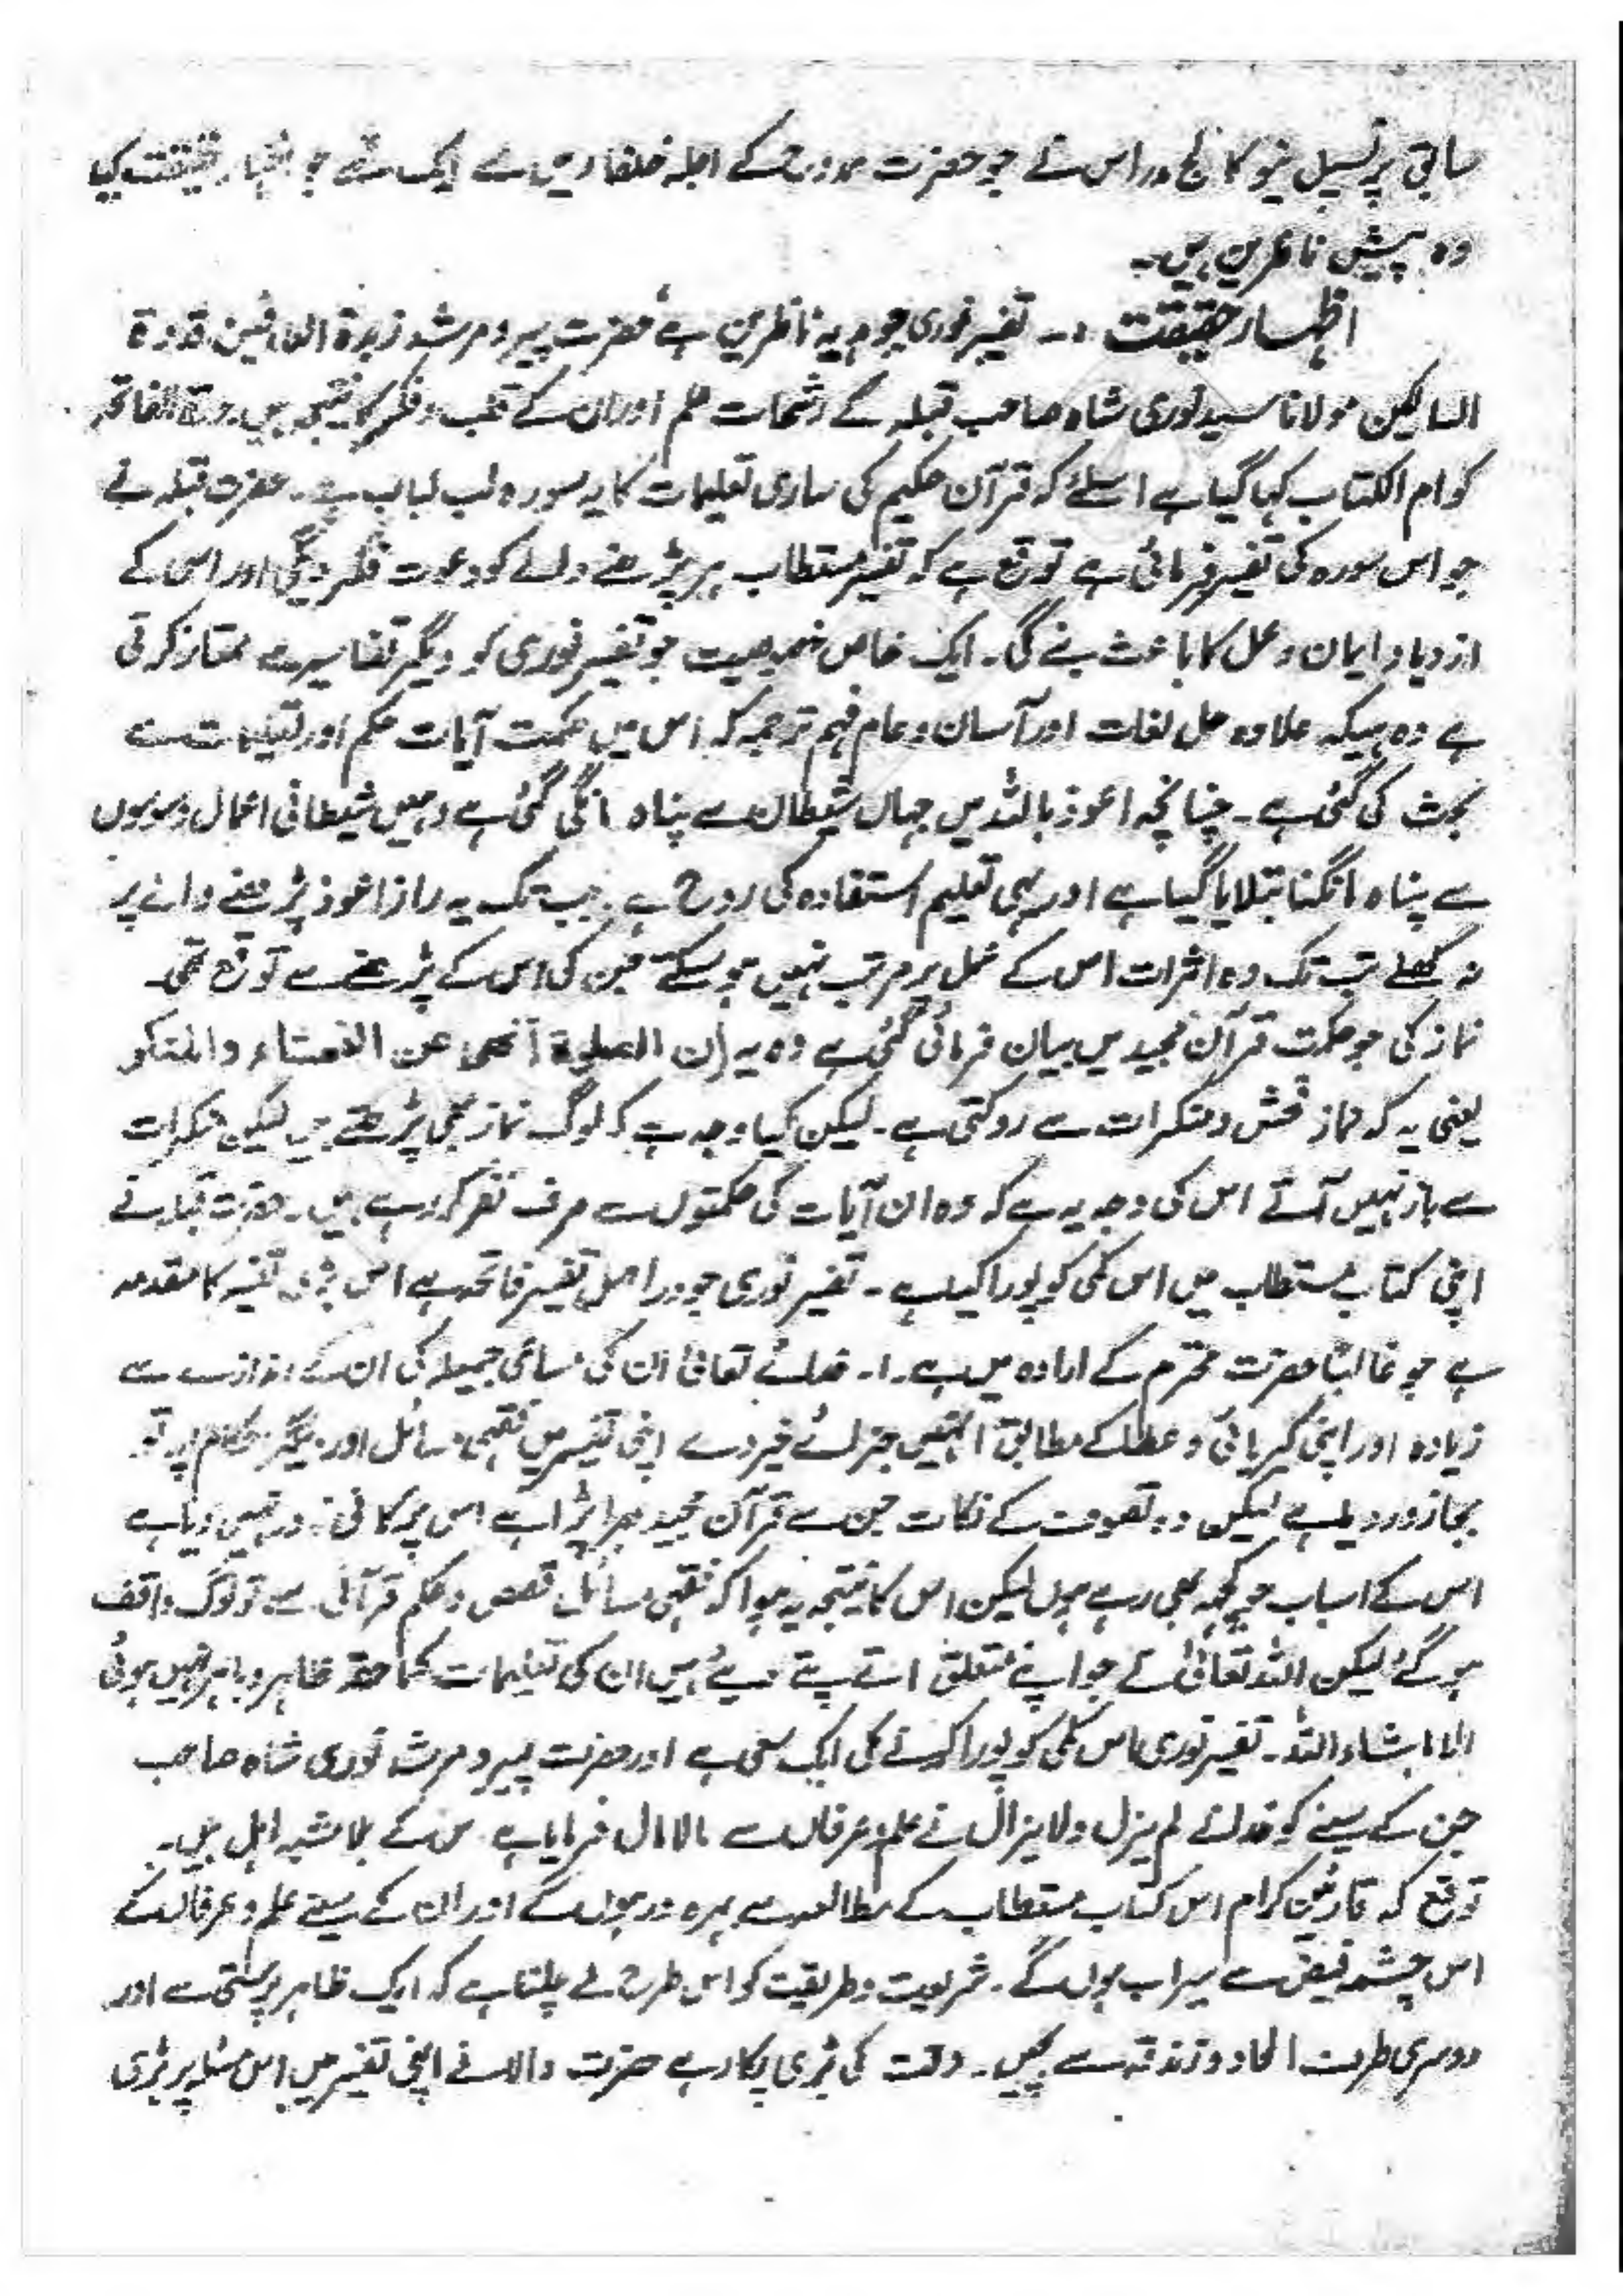 سابق پرنسپل نیو کالج مدراس نے جو حضرت ممدوح کے اجلہ خلفاء میں سے ایک تھے جو اظہار حقیقت کیا
وہ پیش ناظرین ہیں۔
اظہار حقیقت :۔ تفسیر نوری جو ہدیہ ناظرین ہے حضرت پیر و مرشد زبدۃ العارفین قدوۃ
السالکین مولانا سید نوری شاہ صاحب قبلہ کے رشحات علم اور ان کے قلب و فکر کا نتیجہ ہیں سورۃ الفاتحہ
کو ام الکتاب کہا گیا ہے اسلئے کہ قرآن حکیم کی ساری تعلیمات کا یہ سورہ لب لباب ہے۔ حضرت قبلہ نے
جو اس سورہ کی تفسیر فرمائی ہے توقع ہے کہ تفسیر مستطاب ہر پڑھنے والے کو دعوت فکر دیگی اور اس کے
ازدیاد ایمان و عمل کا باعث بنے گی۔ ایک خاص خصوصیت جو تفسیر نوری کو دیگر تفاسیر سے ممتاز کرتی
ہے وہ ہیکہ علاوہ حل لغات اور آسان و عام فہم ترجمہ کہ اس میں حکمت آیات حکم اور تعلیمات سے
بحث کی گئی ہے۔ چنانچہ اعوذ باللہ میں جہاں شیطان سے پناہ مانگی گئی ہے وہیں شیطانی اعمال وسوسوں
سے پناہ مانگنا بتلایا گیا ہے اور یہی تعلیم استفادہ کی روح ہے۔ جب تک یہ راز اعوذ پڑھنے والے پر
نہ کھلے تب تک وہ اثرات اس کے عمل پر مرتب نہیں ہو سکتے جن کی اس کے پڑھنے سے توقع تھی۔
نماز کی جو حکمت قرآن مجید میں بیان فرمائی گئی ہے وہ یہ ان الصلوۃ تنھی عن الفحشاء والمنکر
یعنی یہ کہ نماز فحش و منکرات سے روکتی ہے۔ لیکن کیا وجہ ہے کہ لوگ نماز بھی پڑھتے ہیں لیکن منکرات
سے باز نہیں آتے اس کی وجہ یہ ہے کہ وہ ان آیات کی حکمتوں سے صرف نظر کر رہے ہیں۔ حضرت قبلہ نے
اپنی کتاب مستطاب میں اس کمی کو پورا کیا ہے۔ تفسیر نوری جو دراصل تفسیر فاتحہ ہے اس بڑی تفسیر کا مقدمہ
ہے جو غالباً حضرت محترم کے ارادہ میں ہے۔ خدائے تعالیٰ ان کی مساعی جمیلہ کی ان کے اندازے سے
زیادہ اور اپنی کبریائی و عطا کے مطابق انہیں جزائے خیر دے اپنی تفسیر میں فقہی مسائل اور دیگر احکام پر تو
بجا زور دیا ہے لیکن وہ تصوف کے نکات جن سے قرآن مجید بھرا پڑا ہے اس پر کافی زور نہیں دیا ہے
اس کے اسباب جو کچھ بھی رہے ہوں لیکن اس کا نتیجہ یہ ہوا کہ فقہی مسائل قصص و حکم قرآنی سے تو لوگ واقف
ہو گئے لیکن اللہ تعالیٰ نے جو اپنے متعلق اتے پتے دیئے ہیں ان کی تعلیمات کما حقہ ظاہر و باہر نہیں ہوئی
الا ماشاء اللہ۔ تفسیر نوری اس کمی کو پورا کرنے کی ایک سعی ہے اور حضرت پیر و مرشد نوری شاہ صاحب
جن کے سینے کو خدائے لم یزل ولایزال نے علم و عرفاں سے مالامال فرمایا ہے اس کے بلاشبہ اہل ہیں۔
توقع کہ قارئین کرام اس کتاب مستطاب کے مطالعہ سے بہرہ ور ہوں گے اور ان کے سینے علم و عرفان کے
اس چشمہ فیض سے سیراب ہوں گے۔ شریعت و طریقت کو اس طرح لے چلنا ہے کہ ایک ظاہر پرستی سے اور
دوسری طرف الحاد و زندقہ سے بچیں۔ وقت کی بڑی پکار ہے حضرت والا نے اپنی تفسیر میں اس مسئلہ پر بڑی